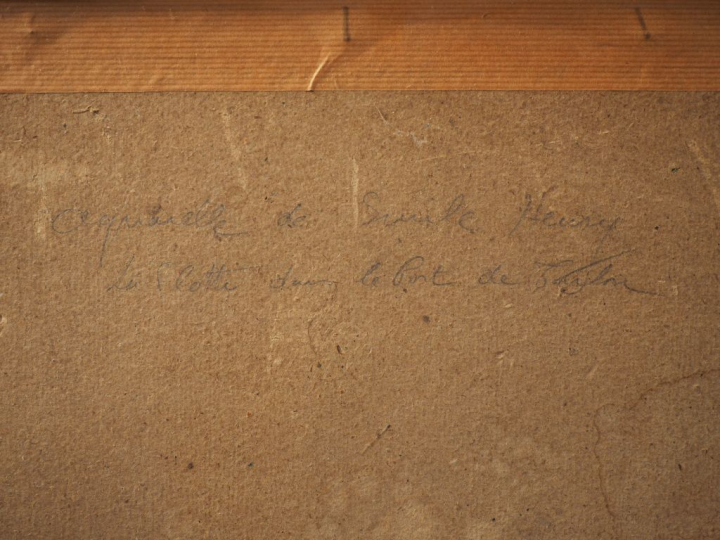 aquarelle de Emile Henry
la flotte dans le Port de Toulon